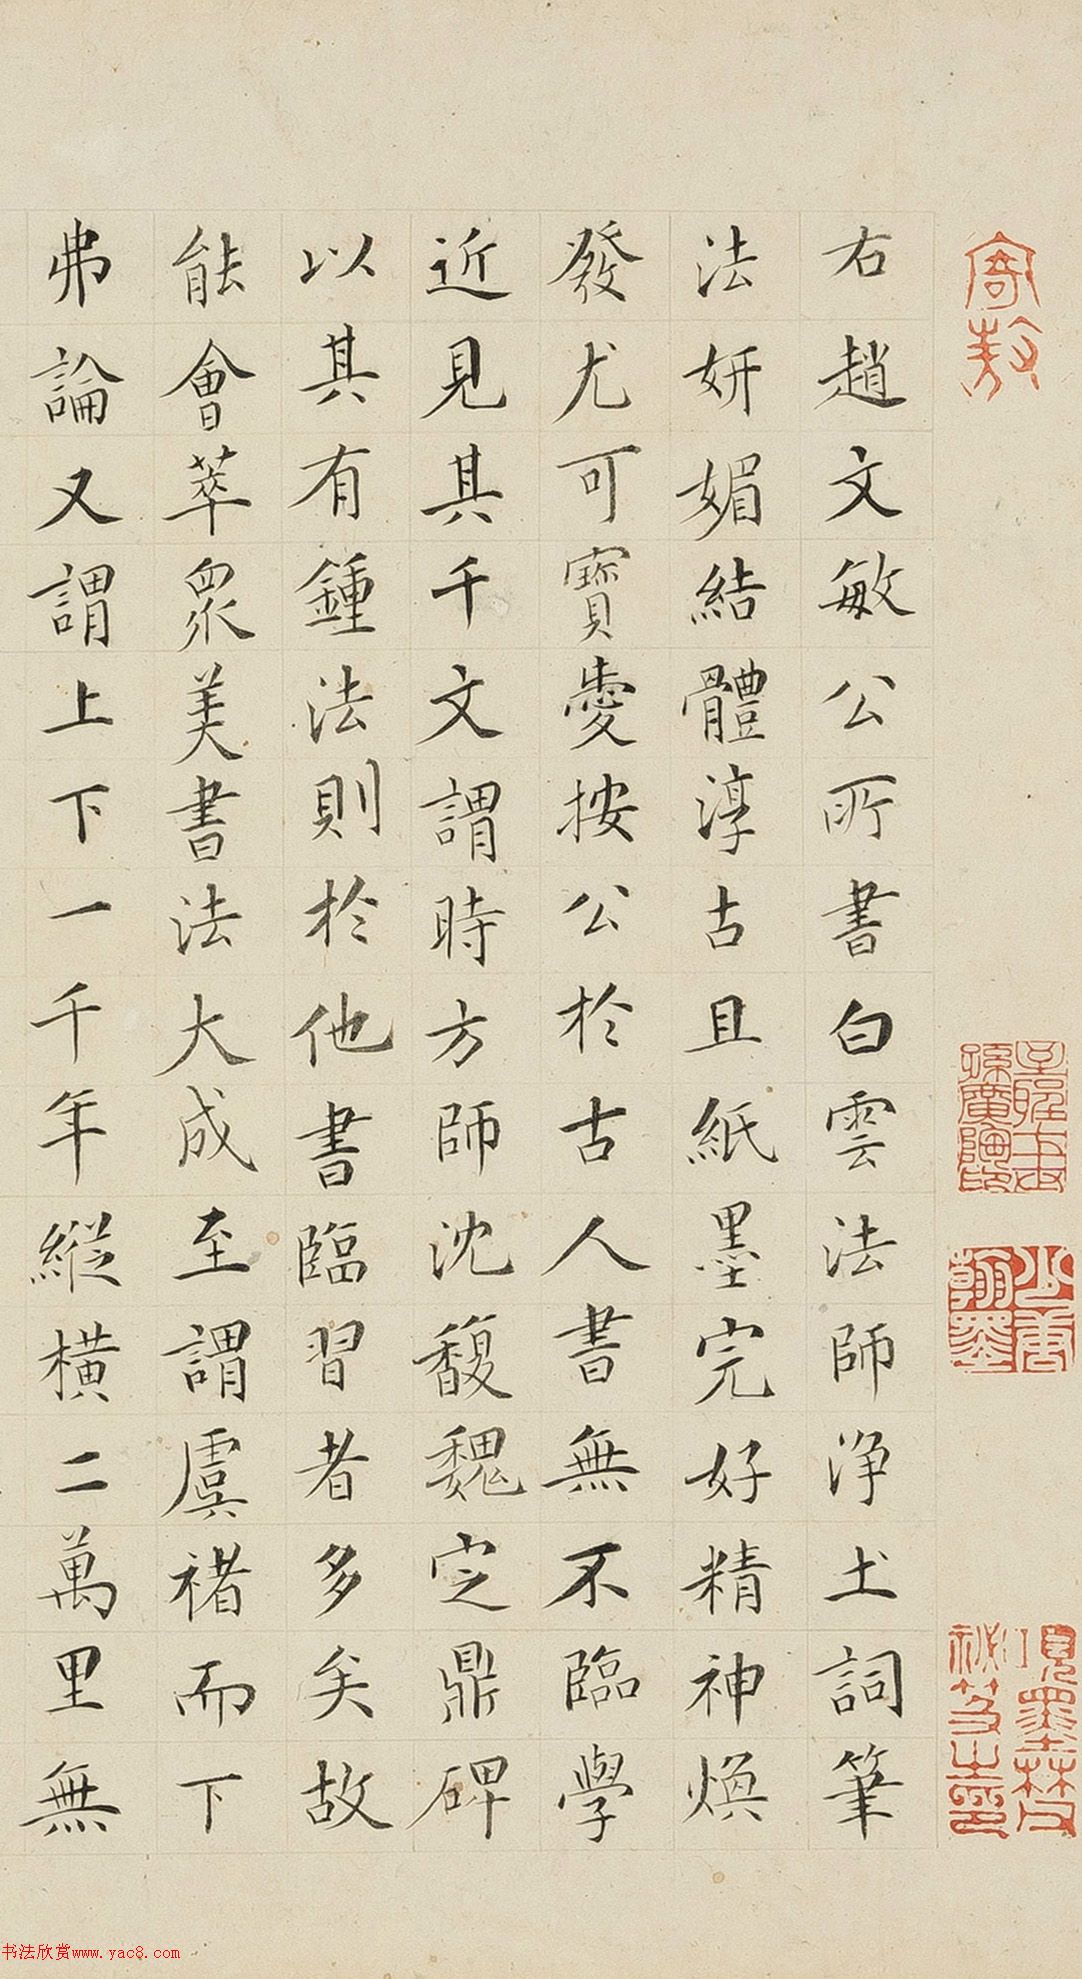 右趙文敏公所書白雲法師淨土詞筆
法妍媚結體淳古且紙墨完好精神煥
發尤可寶愛按公於古人書無不臨學
近見其千文謂時方師沈馥魏定鼎碑
以其有鍾法則於他書臨習者多矣故
能會萃眾美書法大成至謂虞褚而下
弗論又謂上下一千年縱橫二萬里無
寄敖
至聖末
孫廣陶印
少唐
翰墨
項墨林父
祕笈之印
书法欣赏www.yac8.com